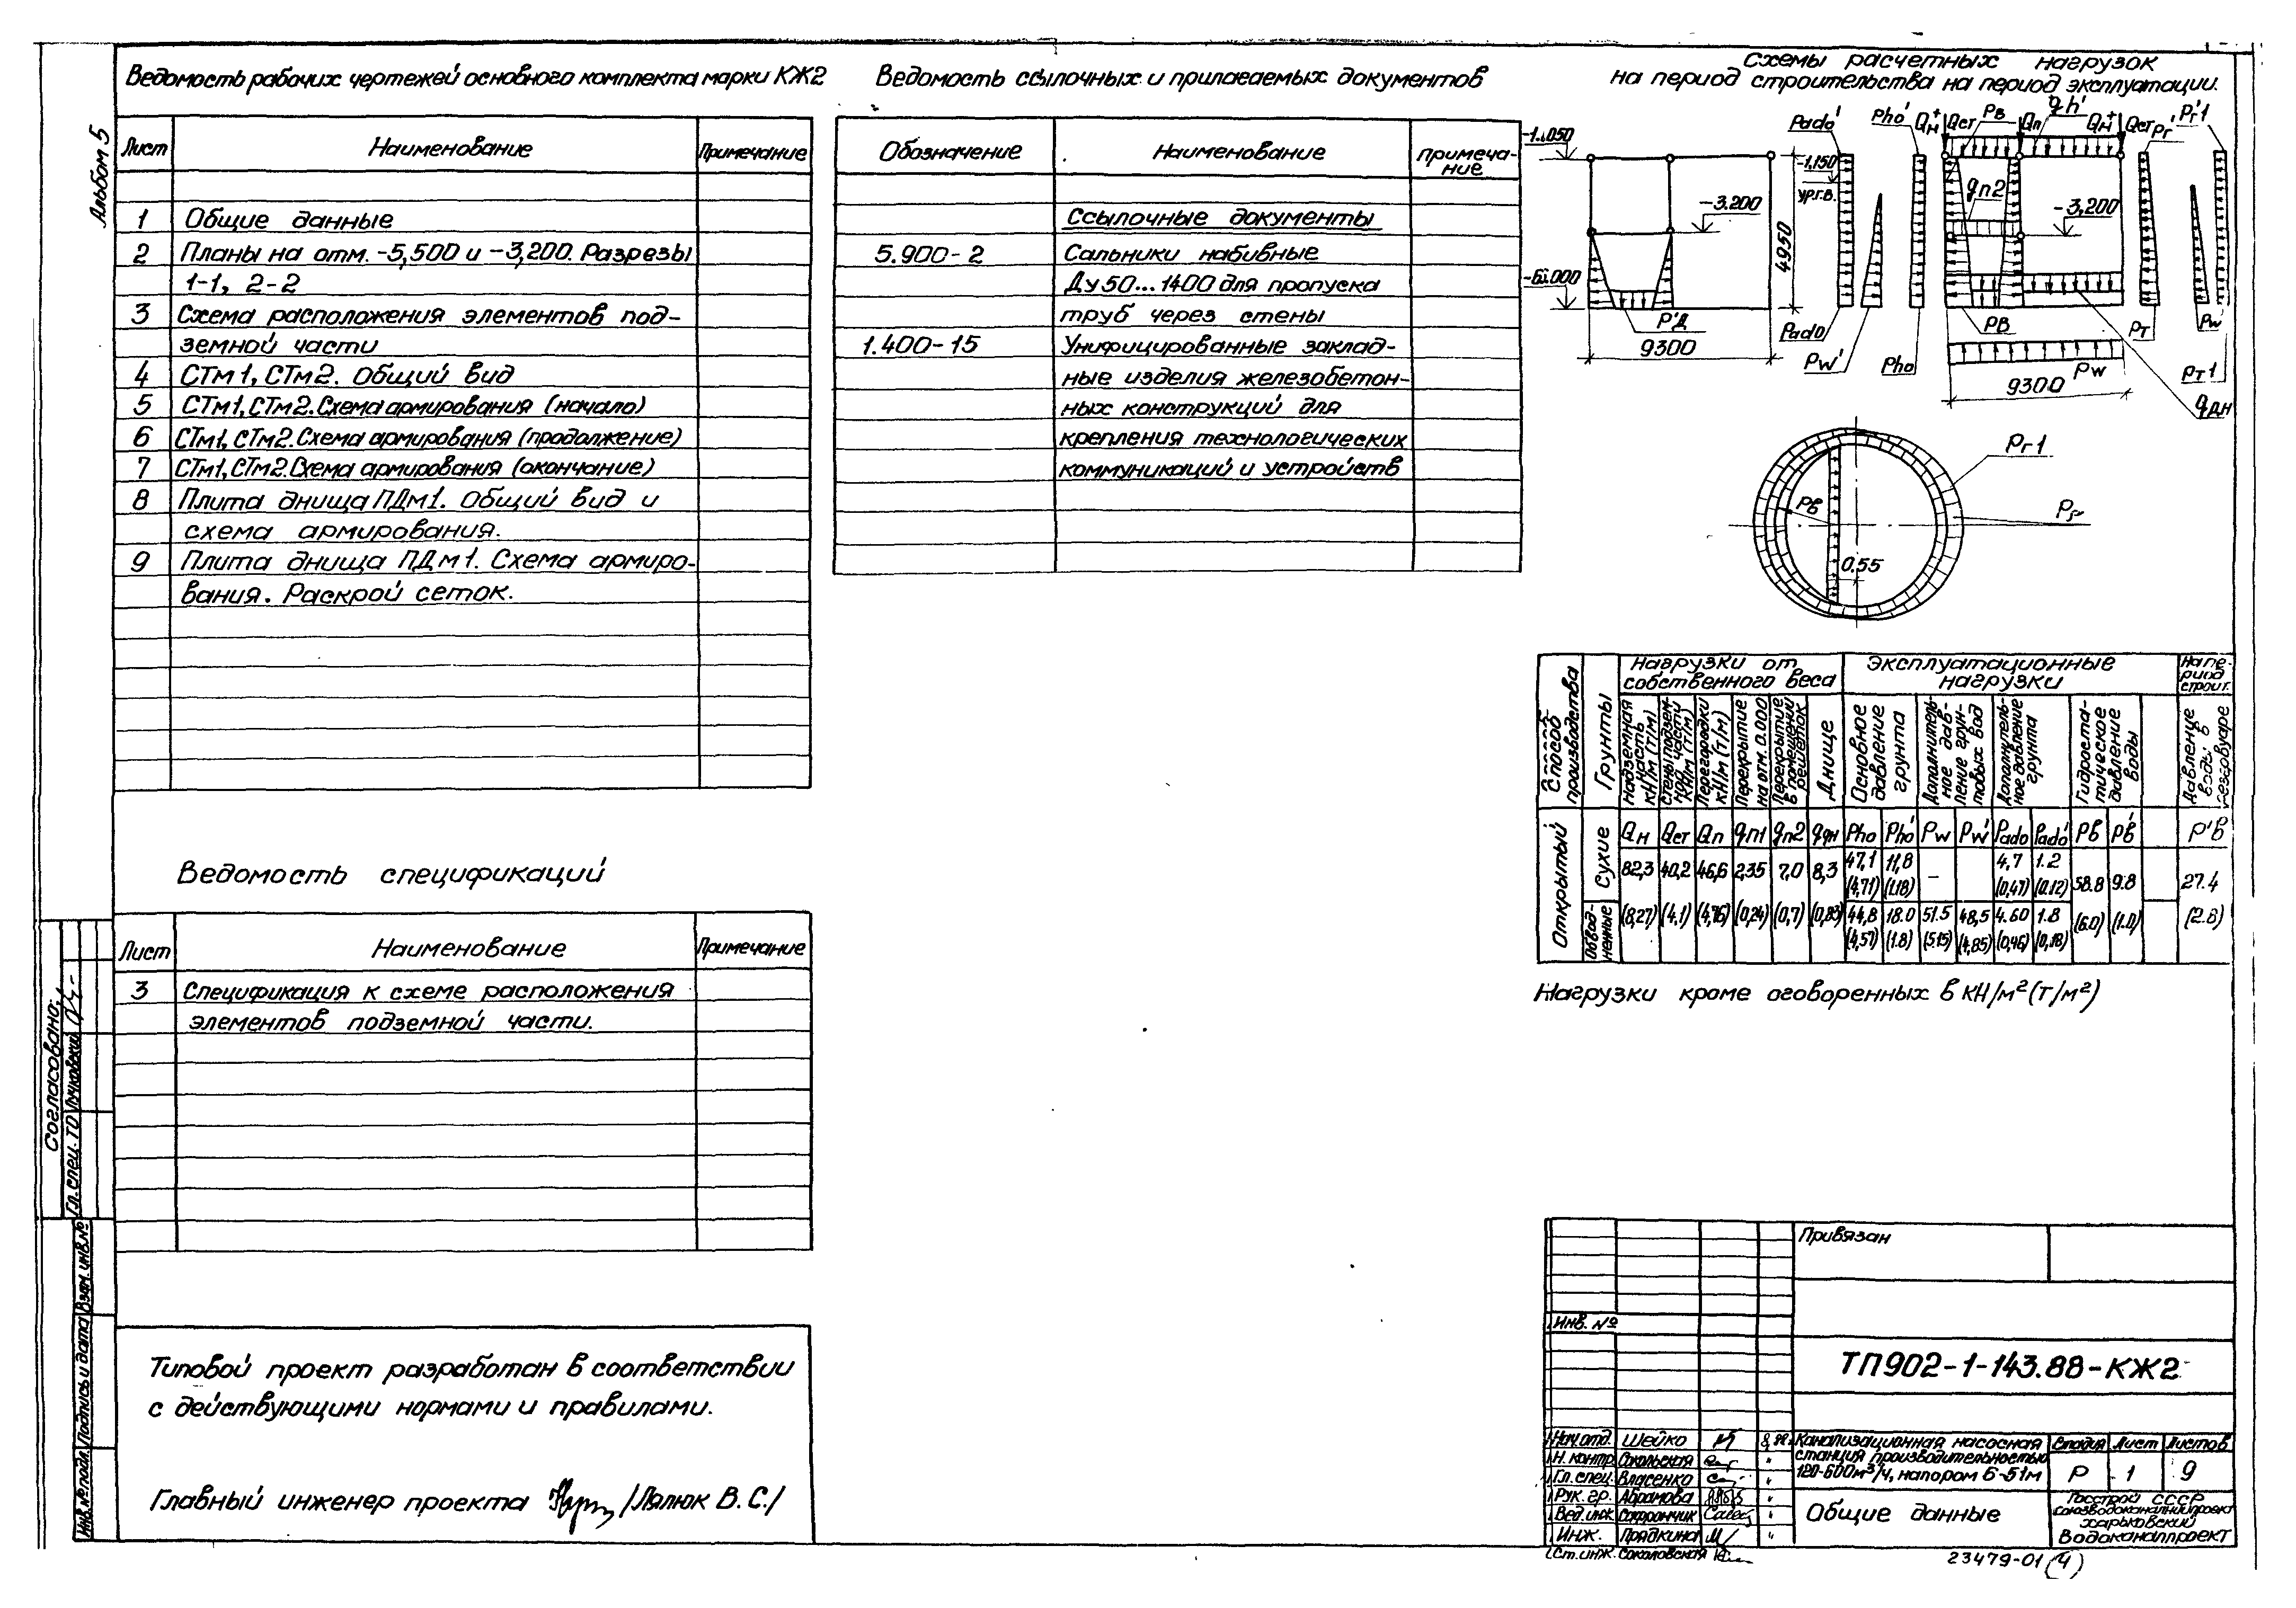 Альбом 5
Ведомость рабочих чертежей основного комплекта марки КЖ2
Лист Наименование Примечание
1 Общие данные
2 Планы на отм. -5,500 и -3,200. Разрезы
1-1, 2-2
3 Схема расположения элементов под-
земной части
4 СТм1, СТм2. Общий вид
5 СТм1, СТм2. Схема армирования (начало)
6 СТм1, СТм2. Схема армирования (продолжение)
7 СТм1, СТм2. Схема армирования (окончание)
8 Плита днища ПДм1. Общий вид и
схема армирования.
9 Плита днища ПДм1. Схема армиро-
вания. Раскрой сеток.
Ведомость ссылочных и прилагаемых документов
Обозначение Наименование Примеча-
ние
Ссылочные документы
5.900-2 Сальники набивные
Ду 50...1400 для пропуска
труб через стены
1.400-15 Унифицированные заклад-
ные изделия железобетон-
ных конструкций для
крепления технологических
коммуникаций и устройств
Схемы расчетных нагрузок
на период строительства на период эксплуатации.
-3.200
Р'Д
9300
4950
-1,150
ур.г.в.
Pado'
Pado
Pw'
Pho'
Pho
Qст
Рв
Qп
gh'
Qст
Рг'
Рг'1
gп2
-3,200
РВ
Pw
9300
Рт
Pw
Рт1
gдн
Рг1
Рв
0,55
Способ производства
Грунты
Нагрузки от
собственного веса
Эксплуатационные
нагрузки
На пе-
риод
строит.
Надземная часть КН/м (Т/м)
Стены подзем-
ной части КН/м (Т/м)
Перегородки КН/м (Т/м)
Перекрытие на отм. 0.000
Перекрытие в помещении решеток
Днище
Основное давление грунта
Дополнитель-
ное дав-
ление грун-
товых вод
Дополнитель-
ное давление грунта
Гидроста-
тическое давление воды
Давление воды в резервуаре
Qн Qст Qп gп1 gп2 gдн Pho Pho' Pw Pw' Pado Pado' Рв Рв' Р'в
Открытый
Сухие
82,3 40,2 46,6 2,35 7,0 8,3 47,1 11,8 – 4,7 1.2 58.8 9.8 27.4
(4,71) (1.18) (0,47) (0.12)
Обвод-
ненные
(8,27) (4,1) (4,76) (0,24) (0,7) (0,83) 44,8 18.0 51.5 48,5 4.60 1.8 (6.0) (1.0) (2.8)
(4,57) (1.8) (5.15) (4.85) (0,46) (0,18)
Нагрузки кроме оговоренных в КН/м² (Т/м²)
Ведомость спецификаций
Лист Наименование Примечание
3 Спецификация к схеме расположения
элементов подземной части.
Согласовано:
Гл. спец. ТО Лучковский
Взам. инв. №
Подпись и дата
Инв. № подл.
Типовой проект разработан в соответствии
с действующими нормами и правилами.
Главный инженер проекта /Лялюк В.С./
Привязан
Инв. №
ТП902-1-143.88-КЖ2
Нач. отд. Шейко
Н. контр. Сокольская
Гл. спец. Власенко
Рук. гр. Абрамова
Вед. инж. Софрончик
Инж. Прядкина
Ст. инж. Соколовская
Канализационная насосная
станция производительностью
120-600м³/ч, напором 6-51м
Стадия Лист Листов
Р 1 9
Общие данные
Госстрой СССР
Союзводоканалниипроект
Харьковский
Водоканалпроект
23479-01 (4)